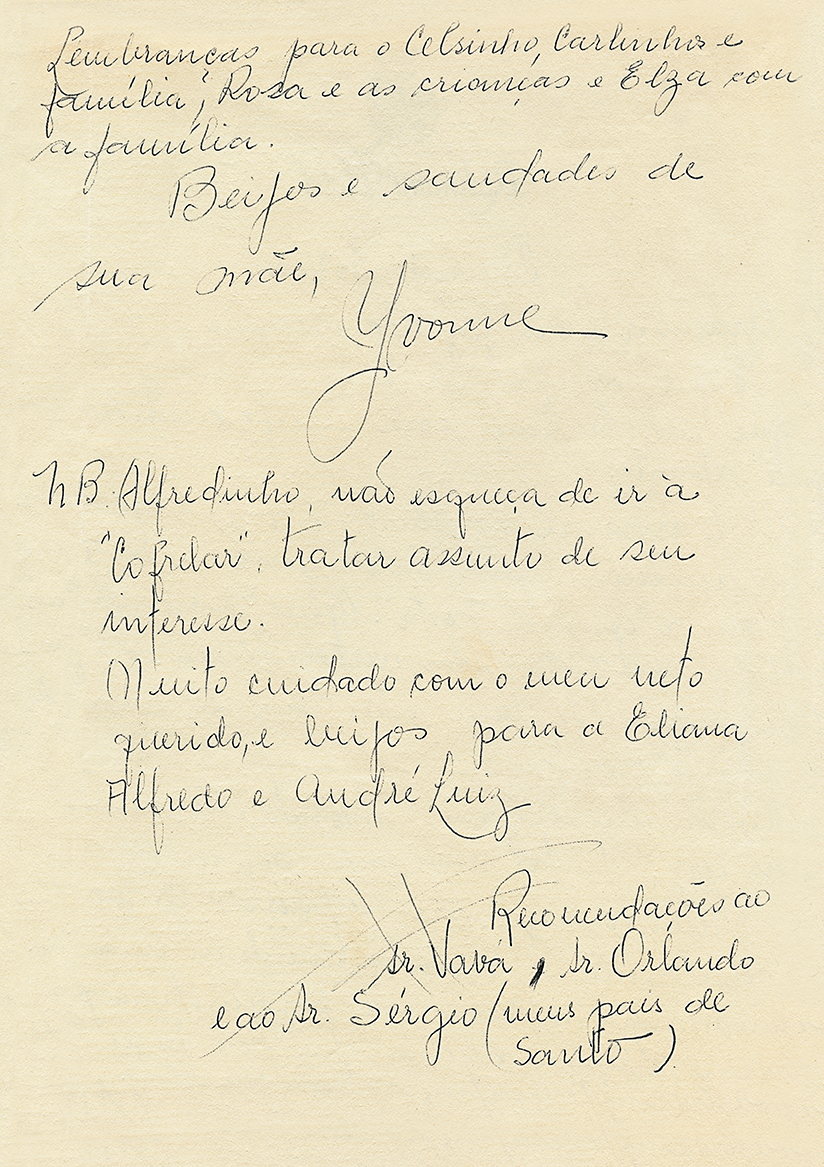 Lembranças para o Celsinho, Carlinhos e
família, Rosa e as crianças e Elza com
a família.
Beijos e saudades de
sua mãe,
Yvonne
NB. Alfredinho, não esqueça de ir à
"Cofrelar", tratar assunto de seu
interesse.
Muito cuidado com o meu neto
querido, e beijos para a Eliana
Alfredo e André Luiz
Recomendações ao
sr. Vavá, sr. Orlando
e ao sr. Sérgio (meus pais de
Santo)